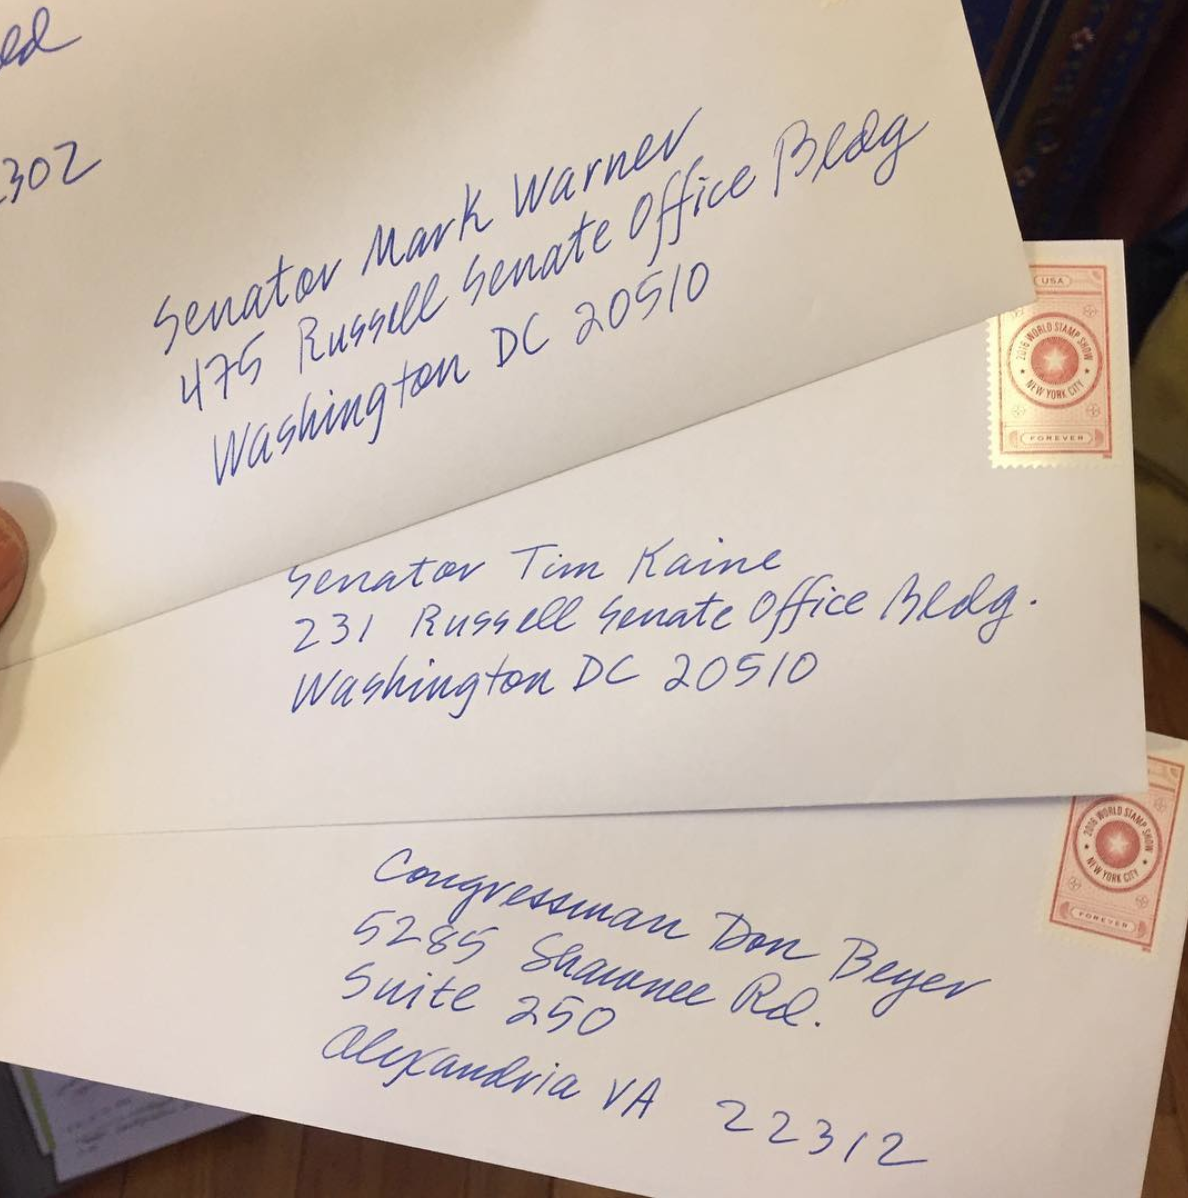 302
Senator Mark Warner
475 Russell Senate Office Bldg
Washington DC 20510
USA
2016 WORLD STAMP SHOW
NEW YORK CITY
FOREVER
Senator Tim Kaine
231 Russell Senate Office Bldg.
Washington DC 20510
2016 WORLD STAMP SHOW
NEW YORK CITY
FOREVER
Congressman Don Beyer
5285 Shawnee Rd.
Suite 250
Alexandria VA 22312